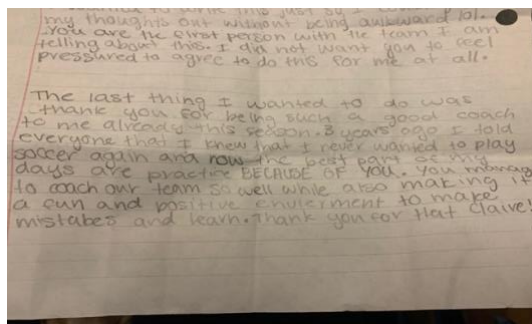 to write this just so I
my thoughts out without being awkward lol.
You are the first person with the team I am
telling about this. I did not want you to feel
pressured to agree to do this for me at all.
The last thing I wanted to do was
thank you for being such a good coach
to me already this season. 3 years ago I told
everyone that I knew that I never wanted to play
soccer again and now the best part of my
days are practice BECAUSE OF YOU. You manage
to coach our team so well while also making it
a fun and positive envierment to make
mistakes and learn. Thank you for that Claire!